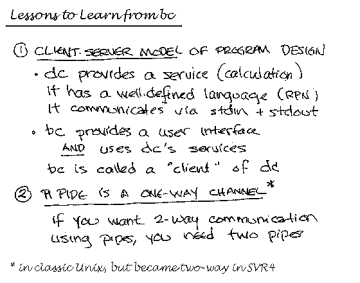 Lessons to Learn from bc
① CLIENT-SERVER MODEL OF PROGRAM DESIGN
• dc provides a service (calculation)
It has a well-defined language (RPN)
It communicates via stdin + stdout
• bc provides a user interface
AND uses dc's services
bc is called a "client" of dc
② A PIPE IS A ONE-WAY CHANNEL*
if you want 2-way communication
using pipes, you need two pipes
* in classic Unix, but became two-way in SVR4